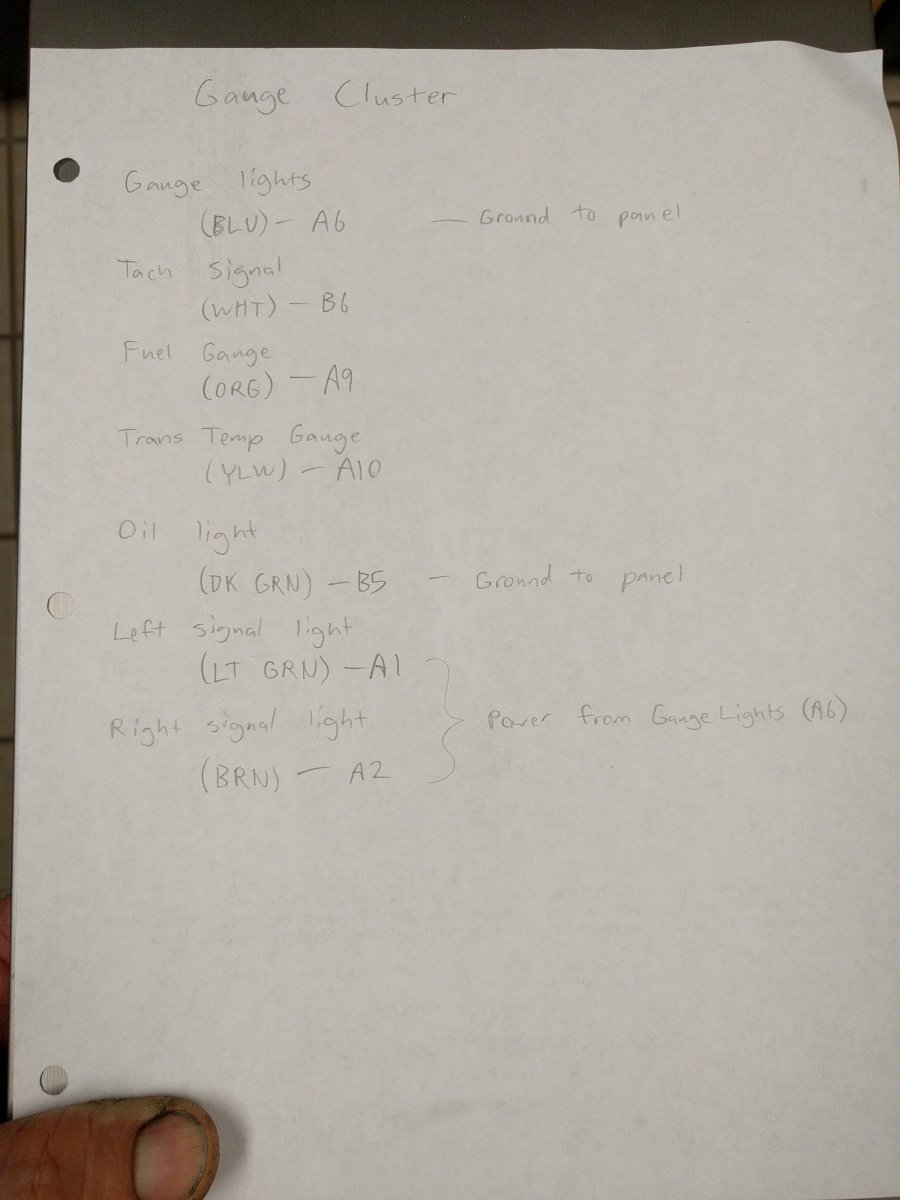 Gauge Cluster
Gauge lights
(BLU) - A6 — Ground to panel
Tach signal
(WHT) - B6
Fuel Gauge
(ORG) - A9
Trans Temp Gauge
(YLW) - A10
Oil light
(DK GRN) - B5 - Ground to panel
Left signal light
(LT GRN) - A1
Right signal light
Power from Gauge Lights (A6)
(BRN) - A2